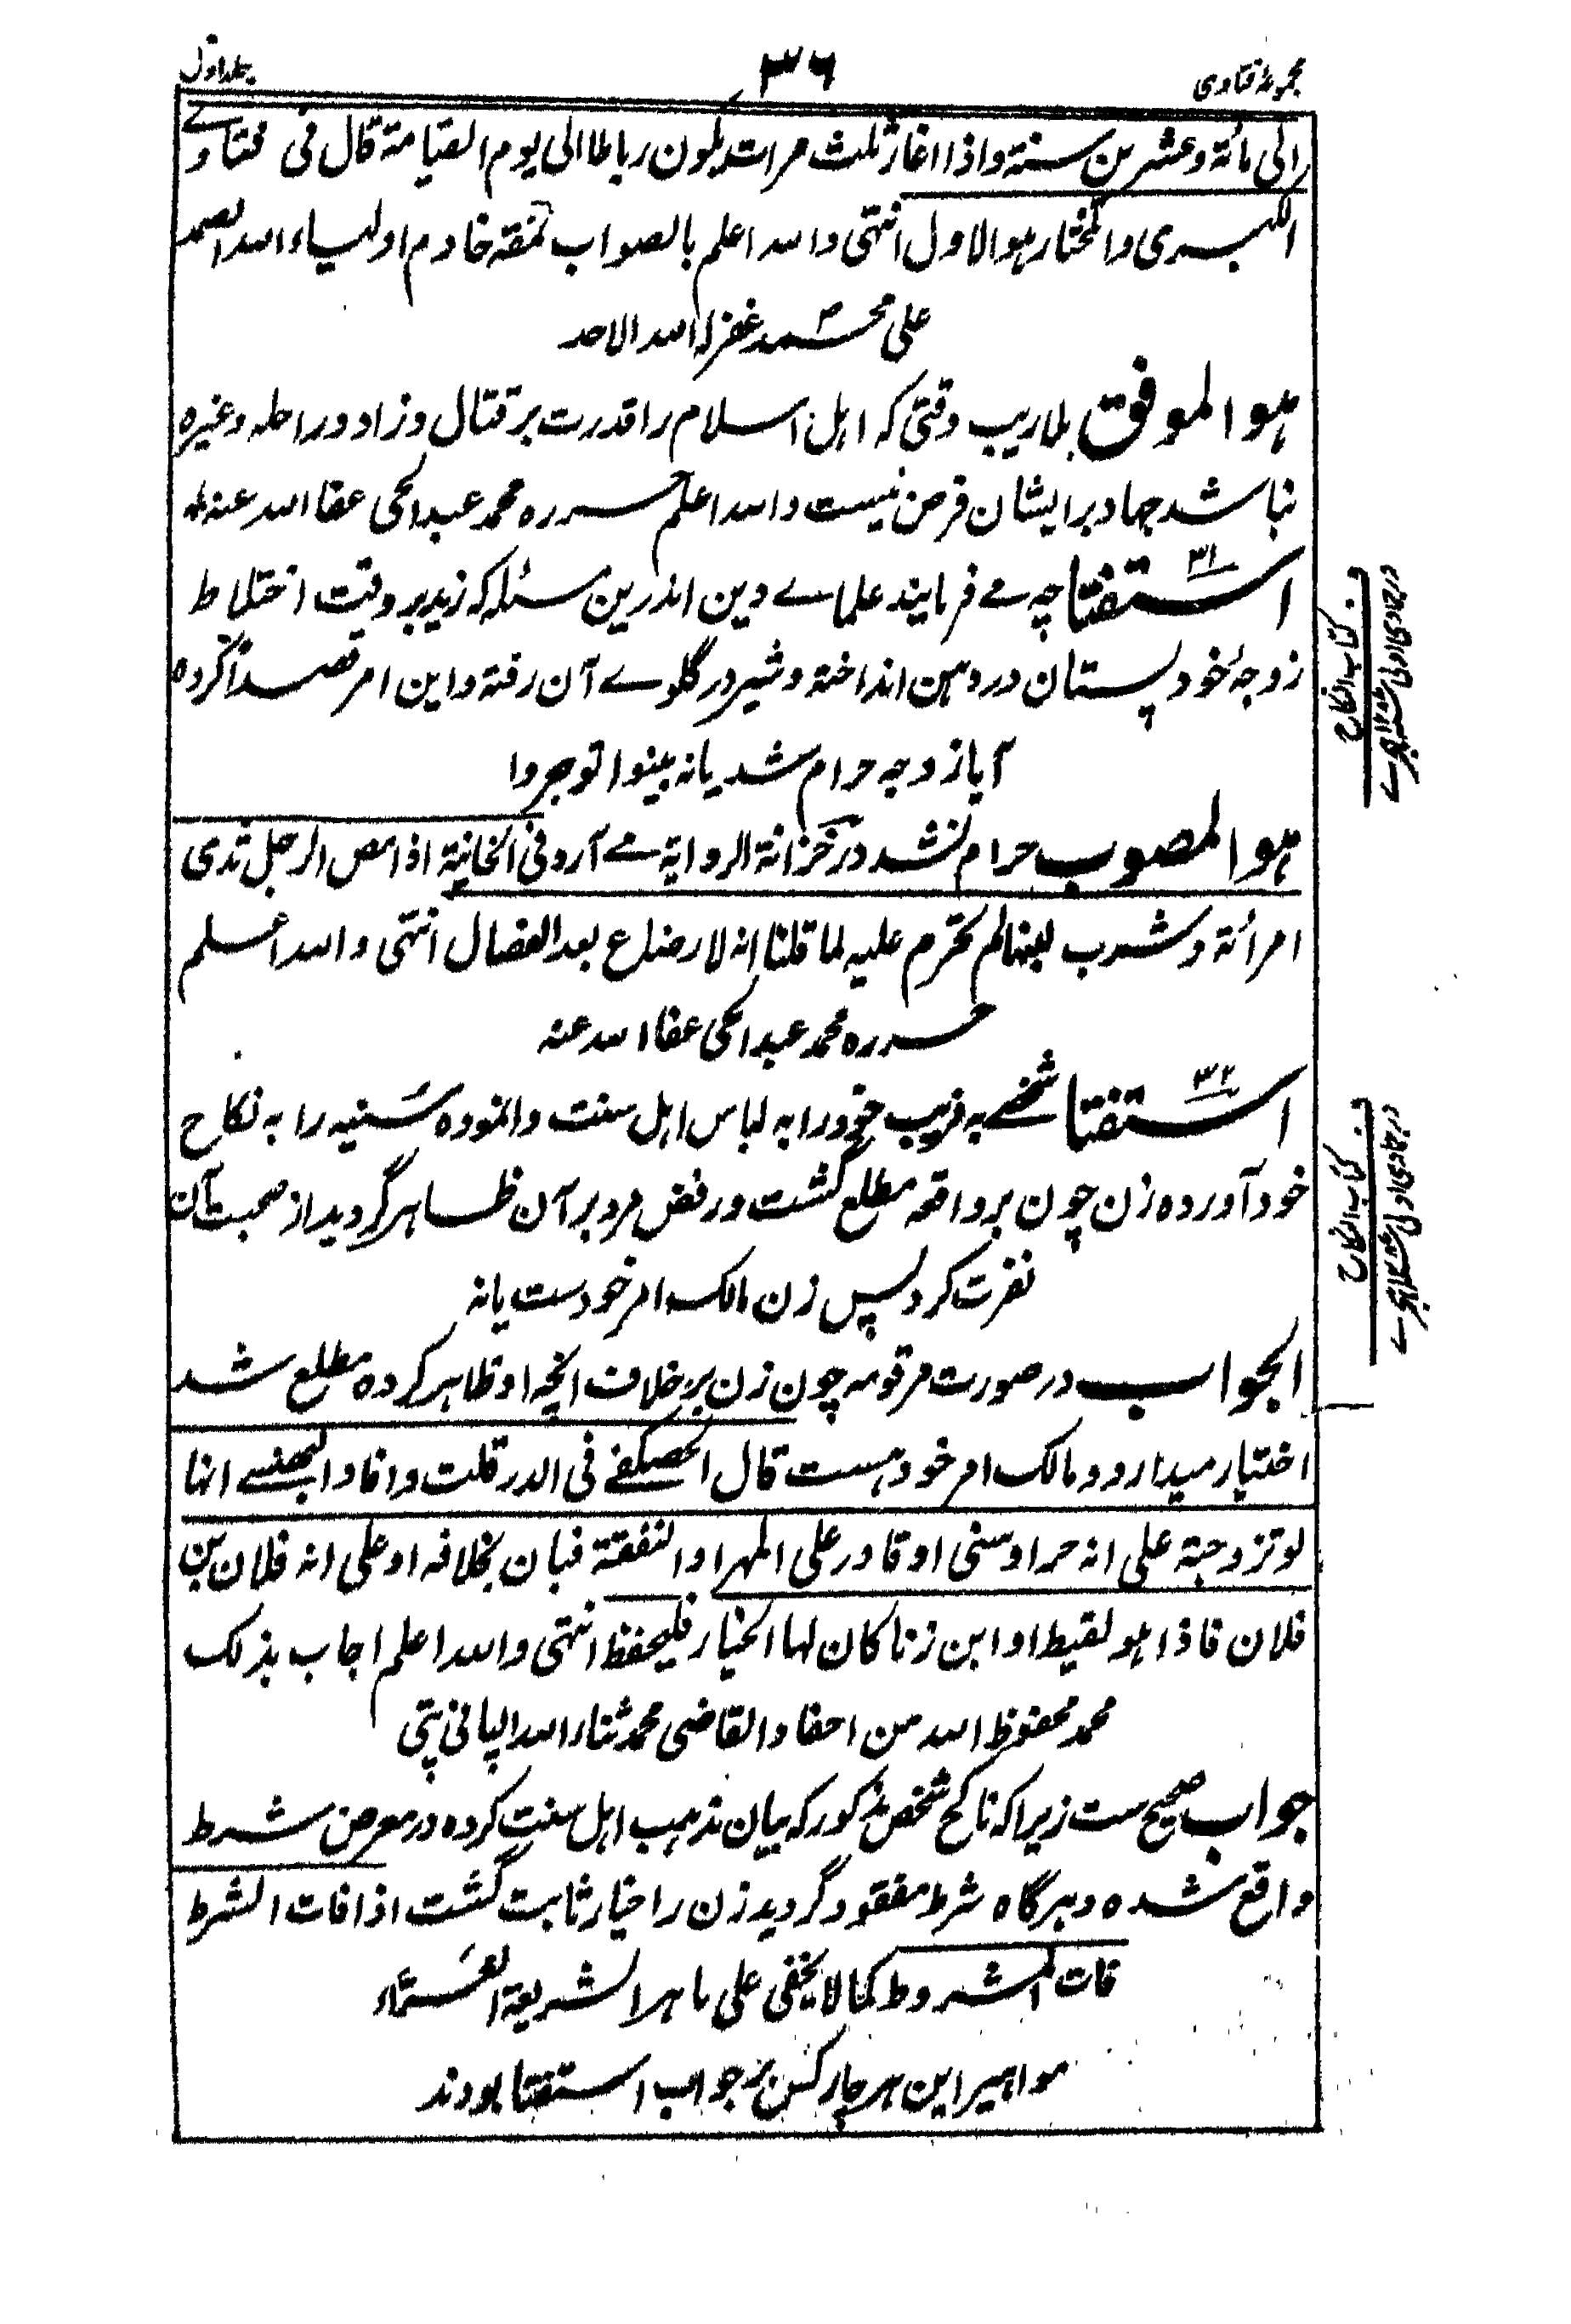 مجموعه فتاوی
۳۶
جلد اول
الی مائة وعشرین سنة واذا اغار ثلث مرات یکون رباطا الی یوم القیامة قال فی فتاوے
الکبری والمختار هو الاول انتهی والله اعلم بالصواب نمقه خادم اولیاء الله الصمد
علی محمد غفر له الله الاحد
هو الموفق بلاریب وقتی که اهل اسلام را قدرت بر قتال و زاد و راحله وغیره
نباشد جهاد بر ایشان فرض نیست والله اعلم حرره محمد عبد الحی عفا الله عنه
استفتا ۳۱ چه مے فرمایند علماے دین اندرین مسئله که زید بر وقت اختلاط
زوجۂ خود پستان در دهن انداخته و شیر در گلوے آن رفته و این امر قصداً کرده
آیا زوجه حرام شد یا نه بینوا توجروا
هو المصوب حرام نشد در خزانة الروایة مے آرد وفی الخانیة اذا مص الرجل ثدی
امرأته وشرب لبنها لم تحرم علیه لما قلنا انه لا رضاع بعد الفصال انتهی والله اعلم
حرره محمد عبد الحی عفا الله عنه
استفتا ۳۲ شخصے به فریب خود را به لباس اهل سنت وانموده سنیه را به نکاح
خود آورده زن چون بر واقعه مطلع گشت و رفض مرد بر آن ظاهر گردید از صحبت آن
نفرت کرد پس زن مالک امر خودست یا نه
الجواب در صورت مرقومه چون زن بر خلاف انچه او ظاهر کرده مطلع شد
اختیار میدارد و مالک امر خود هست قال الحصکفے فی الدر قلت وافاد البهنسے انها
لو تزوجته علی انه حر او سنی او قادر علی المهر او النفقة فبان بخلافه او علی انه فلان بن
فلان فاذا هو لقیط او ابن زنا کان لها الخیار فلیحفظ انتهی والله اعلم اجاب بذلک
محمد محفوظ الله من احفاد القاضی محمد ثناء الله الپانی پتی
جواب صحیح ست زیرا که ناکح شخص مذکور که بیان مذهب اهل سنت کرده در معرض شرط
واقع شده و هرگاه شرط مفقود گردید زن را خیار ثابت گشت اذا فات الشرط
فات المشروط کما لا یخفی علی ماهر الشریعة الغراء
مواهیر این هر چار کس بر جواب استفتا بودند
کتاب النکاح
در جمادی اولی
کتاب النکاح
در جمادی اولی